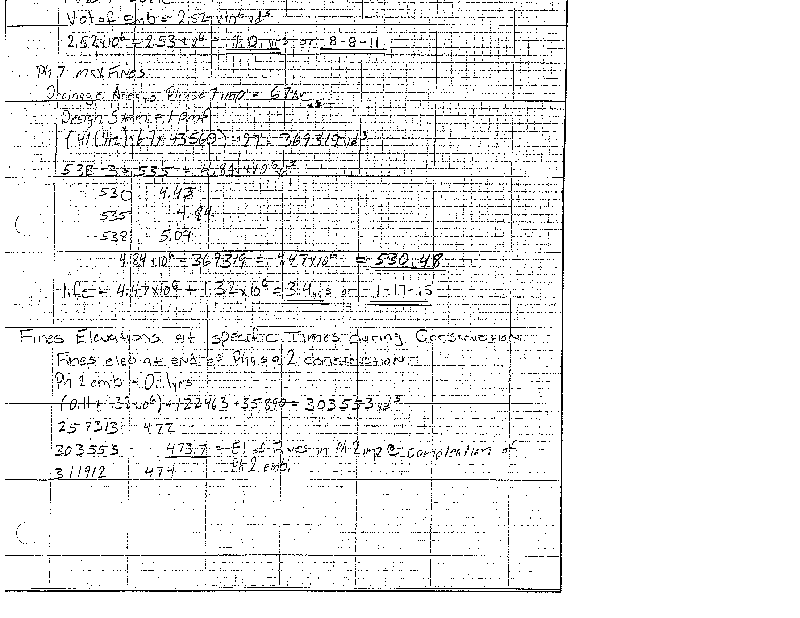 Vol of emb = 2.52 x10⁶ yd³
2.52x10⁶ ÷ 2.53 x10⁶ = or 8-8-11
Ph 7 max Fines
Drainage Area Phase 7 imp = 67ac
Design Storm = 1 pmf
x 43560) ÷ 27 = 369319 yd³
538 - 3 = 535 =
530 4.43
535 4.84
538 5.09
4.84 x10⁶ - 369319 = 4.47x10⁶ = 530.48
Life = 4.47x10⁶ ÷ 1.32x10⁶ = 3.4 yrs or 1-17-15
Fines Elevations at specific Times during Construction
Fines elev at end of Phase 2 construction
Ph 2 emb = 0.11yrs
+ 122463 + 35890 = 303553 yd³
257313 472
303553 473.7 = El of Fines in Ph 2 imp @ completion of
311912 474 Ph 2 emb.